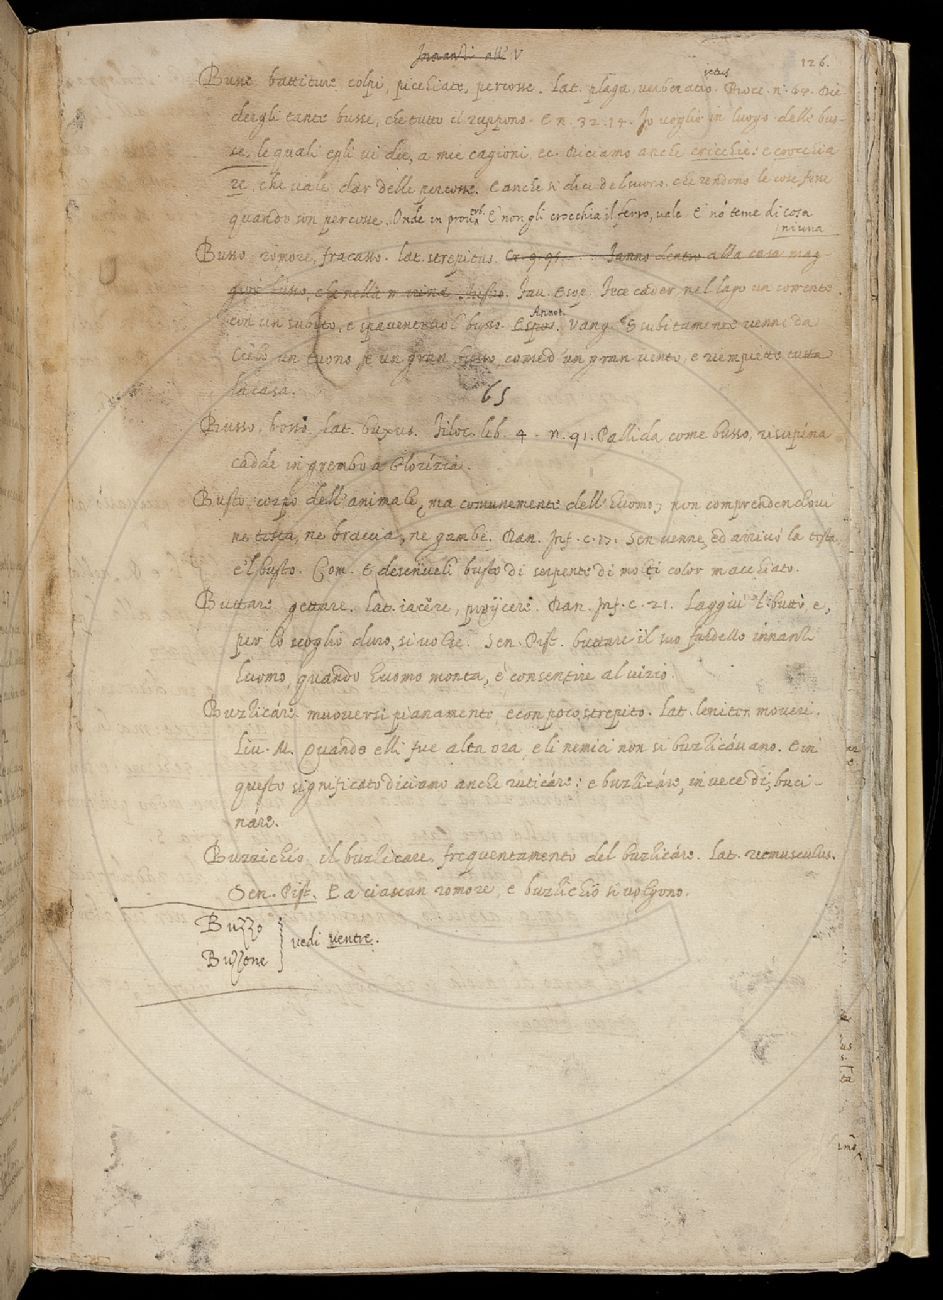 Innanzi all' V
126.
Busse, battiture, colpi, picchiate, percosse. Lat. plaga, verberatio, ictus. Bocc. n. 64. Die
dergli tante busse, che tutto il ruppono. E n. 32. 14. Io voglio in luogo delle bus-
se, le quali egli vi die, a mee cagioni, ec. Diciamo anche cricchie: e crocchia
re, che vale dar delle percosse. E anche si dice del suono. che rendono le cose fesse
quando son percosse. Onde in prov. E' non gli crocchia il ferro, vale E' nõ teme di cosa
niuna
Busso, romore, fracasso. Lat. strepitus. Cr. 9. 95. Fanno dentro alla casa mag-
gior busso, che nella Fav. Esop. Fece cader nel lago un corrente
con un subito, e spaventevol busso. Espos. Annot. Vang. E subitamente venne da
Cielo un tuono, e un gran busso, come d'un gran vento, e riempiette tutta
la casa.
65
Busso, bosso. Lat. buxus. Filoc. lib. 4. n. 91. Pallida come busso, risupina
cadde in grembo a Glorizia.
Busto, corpo dell'animale, ma comunemente dell'huomo, non comprendendovi
ne testa, ne braccia, ne gambe. Dan. Inf. c. 17. Sen venne, ed arrivò la testa
e'l busto. Com. E busto di serpente di molti color macchiato.
Buttare, gettare. Lat. iacĕre, proijcere. Dan. Inf. c. 21. Laggiù 'l buttò, e,
per lo scoglio duro, si volse. Sen. Pist. buttare il suo fardello innanzi
huomo, quando huomo monta, e consentire al vizio.
Buzlicáre, muoversi pianamente, e con poco strepito. Lat. leniter moveri.
Liv. M. Quando elli fue alta ora, e li nemici non si buzlicávano. E in
questo significato diciamo anche ruticáre: e buzlicáre, in vece di, buci-
náre.
Buzzichío, il buzlicare, frequentamento del buzlicáre. Lat.
Sen. Pist. E a ciascun romore, e buzlichío si volgono.
Buzzo
Buzzone
vedi ventre.